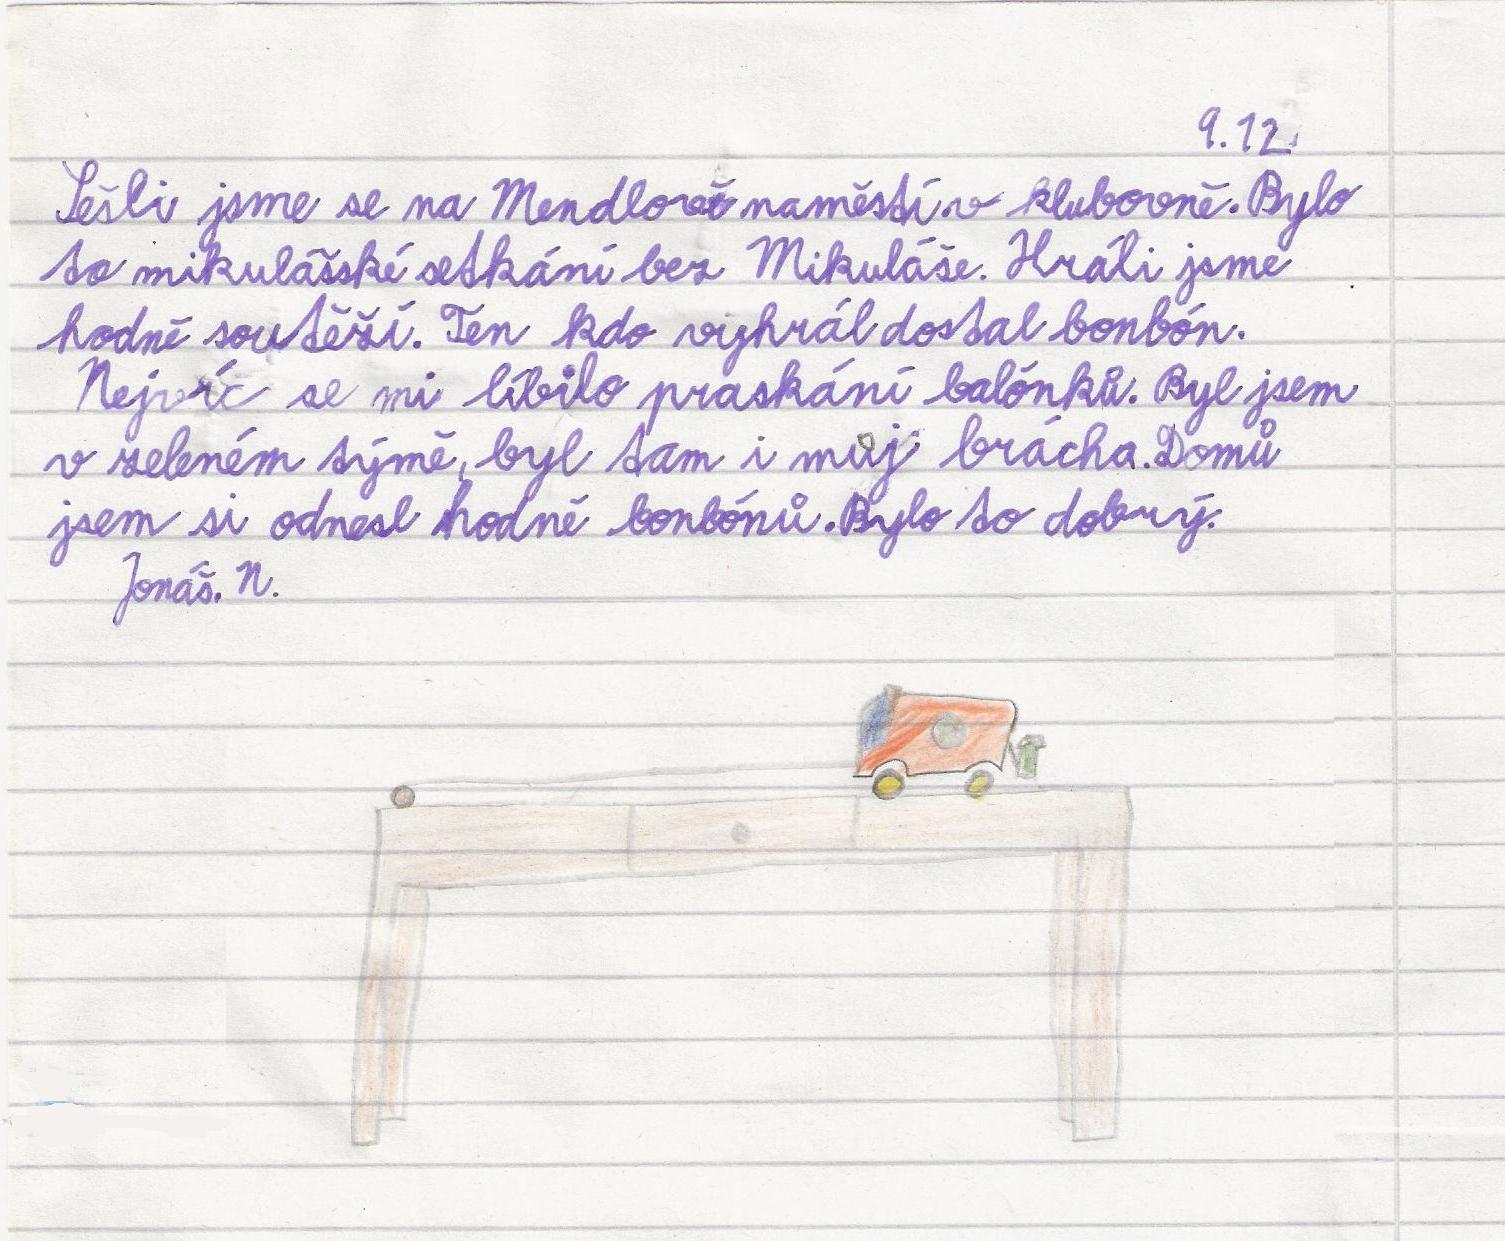 9.12.
Sešli jsme se na Mendlově naměstí v klubovně. Bylo
to mikulášské setkání bez Mikuláše. Hráli jsme
hodně soutěží. Ten kdo vyhrál dostal bonbón.
Nejvíc se mi líbilo praskání balónků. Byl jsem
v zeleném týmě, byl tam i můj brácha. Domů
jsem si odnesl hodně bonbónů. Bylo to dobrý.
Jonáš. N.